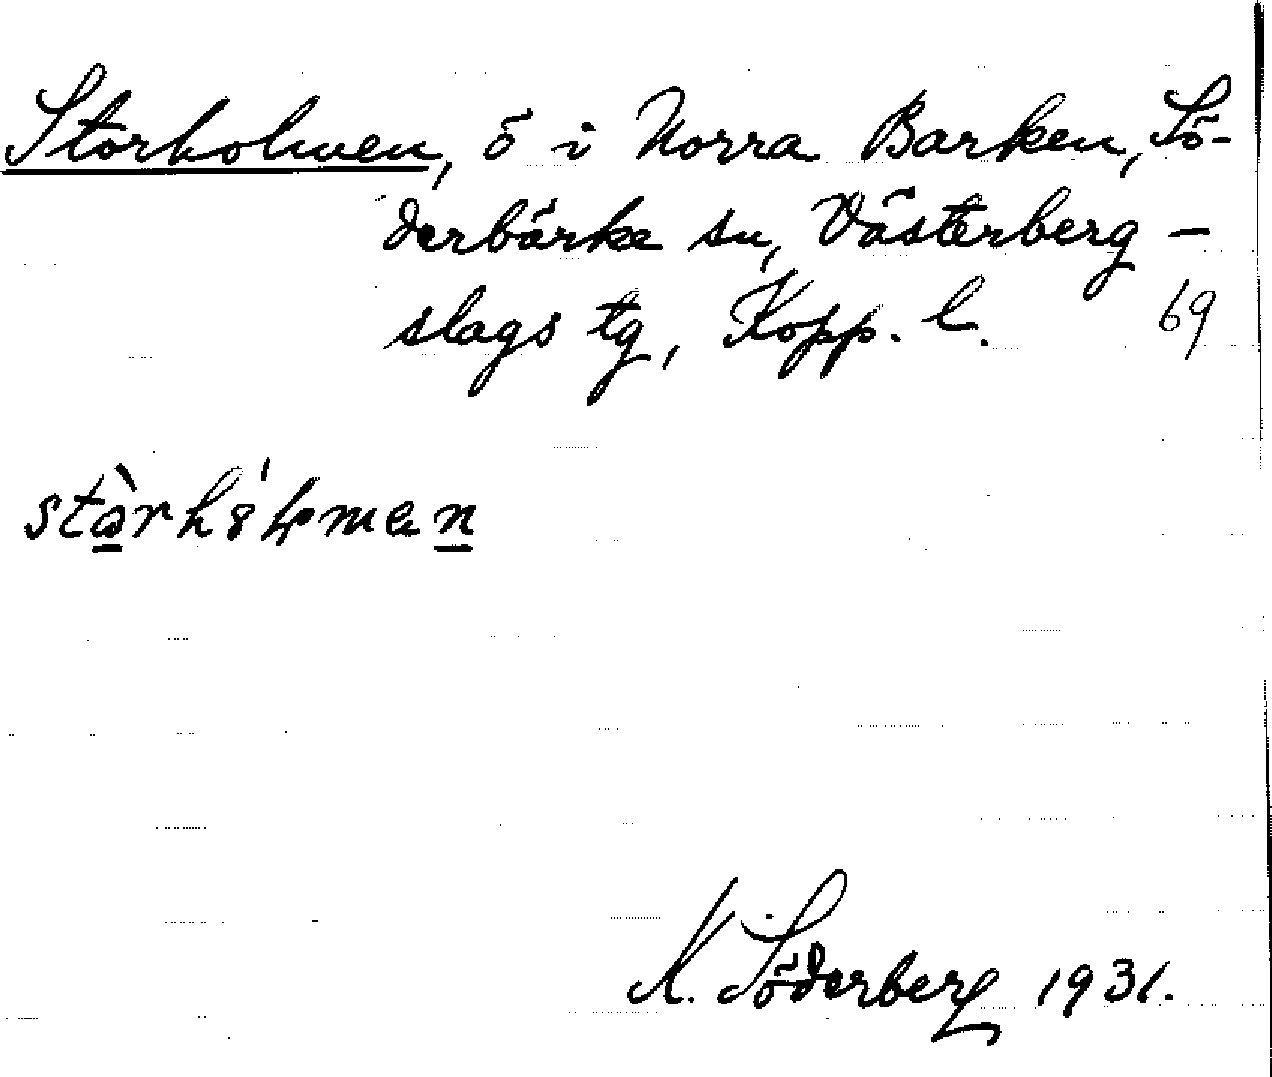 Storholmen, ö i Norra Barken, Sö-
derbärke sn, Västerberg-
slags tg, Kopp. l. 69
K. Söderberg 1931.